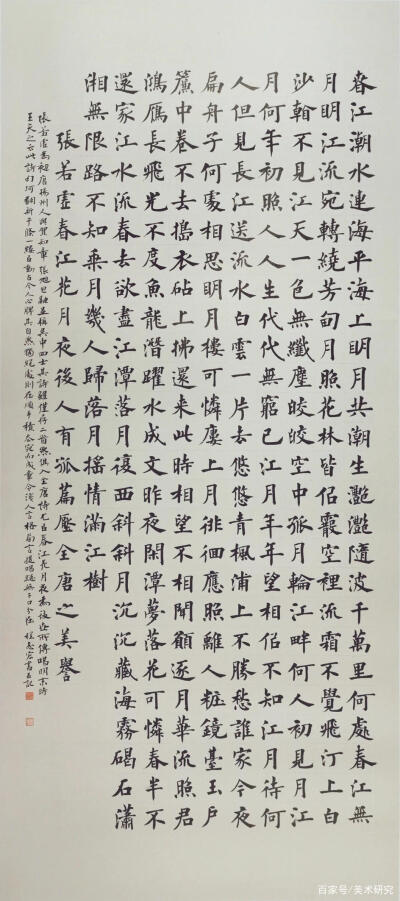 春江潮水連海平海上明月共潮生灩灩隨波千萬里何處春江無
月明江流宛轉繞芳甸月照花林皆佀霰空裡流霜不覺飛汀上白
沙翰不見江天一色無纖塵皎皎空中孤月輪江畔何人初見月江
月何年初照人人生代代無窮已江月年年望相佀不知江月待何
人但見長江送流水白雲一片去悠悠青楓浦上不勝愁誰家今夜
扁舟子何處相思明月樓可憐廔上月徘徊應照離人粧鏡臺玉戶
簾中卷不去擣衣砧上拂還來此時相望不相聞願逐月華流照君
鴻雁長飛光不度魚龍潛躍水成文昨夜閑潭夢落花可憐春半不
還家江水流春去欲盡江潭落月復西斜斜月沉沉藏海霧碣石瀟
湘無限路不知乘月幾人歸落月搖情滿江樹
張若虛春江花月夜後人有孤篇壓全唐之美譽
張若虛為初唐揚州人與賀知章張旭包融並稱吳中四士其詩雖僅存二首然俱入全唐詩尤春江花月夜為後世所傳唱明末清
百家号/美术研究